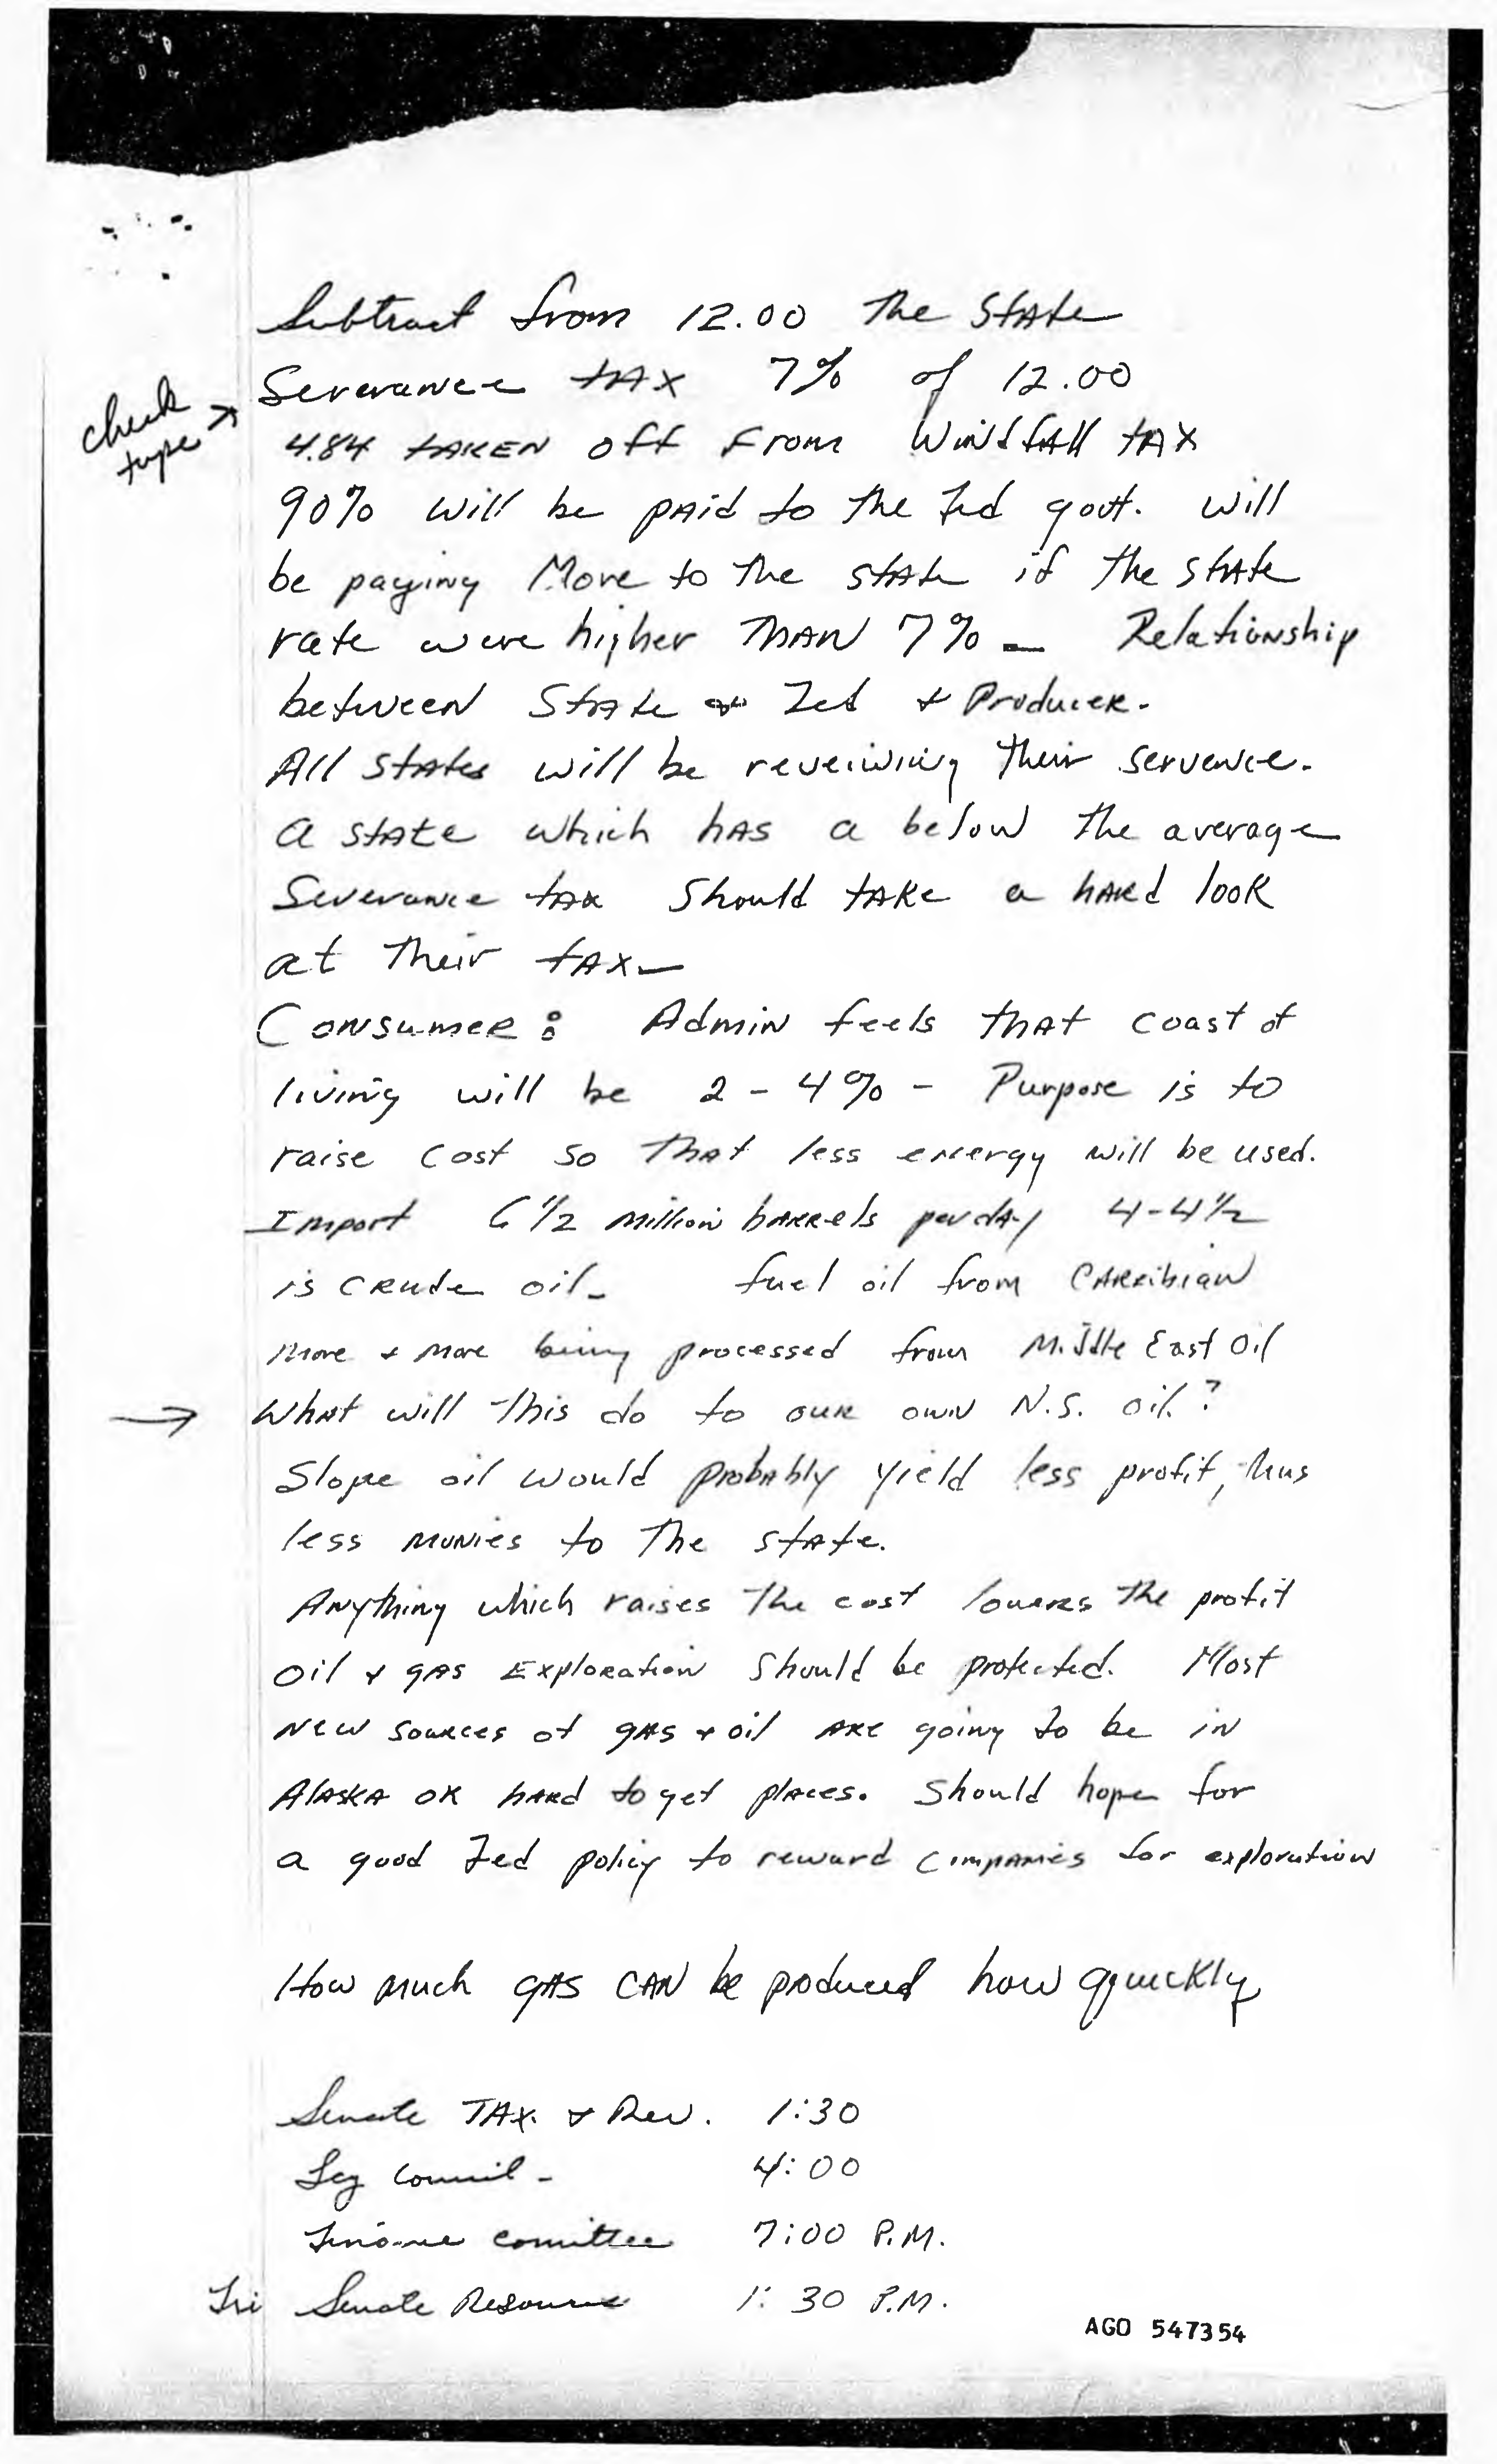 Subtract from 12.00 The State
Severance tax 7% of 12.00
check tape →
4.84 taken off from Windfall tax
90% will be paid to the Fed govt. will
be paying More to the state if the state
rate were higher Than 7% — Relationship
between State Fed + Producer.
All states will be reveiwing their servence.
a state which has a below the average
Severance tax should take a hard look
at their tax—
Consumer: Admin feels that coast of
living will be 2 - 4% - Purpose is to
raise cost so that less energy will be used.
Import 6 1/2 million barrels per day 4-4 1/2
is crude oil - fuel oil from Carribian
more + more being processed from Middle East oil
→ What will this do to our own N.S. oil?
Slope oil would probably yield less profit, thus
less monies to the state.
Anything which raises the cost lowers the profit
oil + gas Exploration should be protected. Most
new sources of gas + oil are going to be in
Alaska or hard to get places. Should hope for
a good Fed policy to reward companies for exploration
How much gas can be produced how qquickly
Senate Tax. + Rev. 1:30
Leg Council - 4:00
Finance comittee 7:00 P.M.
Fri Senate Resource 1:30 P.M.
AGO 547354